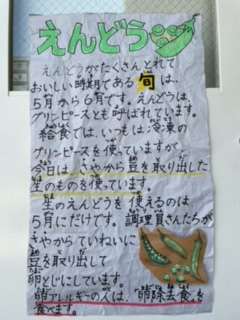 えんどう
えんどうがたくさんとれて
おいしい時期である旬は、
5月から6月です。えんどうは
グリンピースとも呼ばれています。
給食では、いつもは冷凍の
グリンピースを使っていますが、
今日は、さやから豆を取り出した
生のものを使っています。
生のえんどうを使えるのは
5月にだけです。調理員さんたちが
さやからていねいに
豆を取り出して
卵とじにしています。
卵アレルギーの人は、"卵除去食"を
食べます。